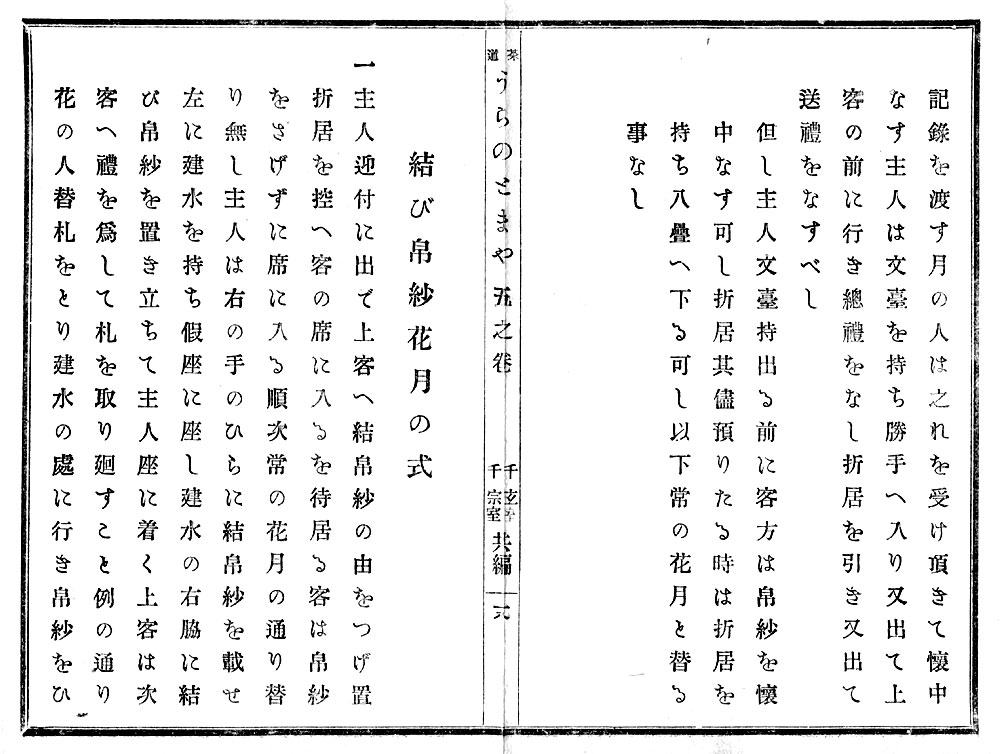 記錄を渡す月の人は之れを受け頂きて懷中
なす主人は文臺を持ち勝手へ入り又出て上
客の前に行き總禮をなし折居を引き又出て
送禮をなすべし
但し主人文臺持出る前に客方は帛紗を懷
中なす可し折居其儘預りたる時は折居を
持ち八疊へ下る可し以下常の花月と替る
事なし
茶道
うらのとまや 五之卷
千玄
千宗室
共編
結び帛紗花月の式
一主人迎付に出で上客へ結帛紗の由をつげ置
折居を控へ客の席に入るを待居る客は帛紗
をさげずに席に入る順次常の花月の通り替
り無し主人は右の手のひらに結帛紗を載せ
左に建水を持ち假座に座し建水の右脇に結
び帛紗を置き立ちて主人座に着く上客は次
客へ禮を爲して札を取り廻すこと例の通り
花の人替札をとり建水の處に行き帛紗をひ